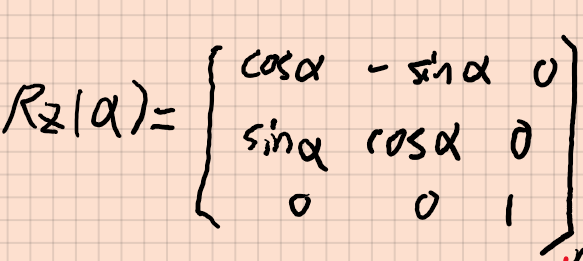 Rz(α)= [ cosα - sinα 0
sinα cosα 0
0 0 1 ]